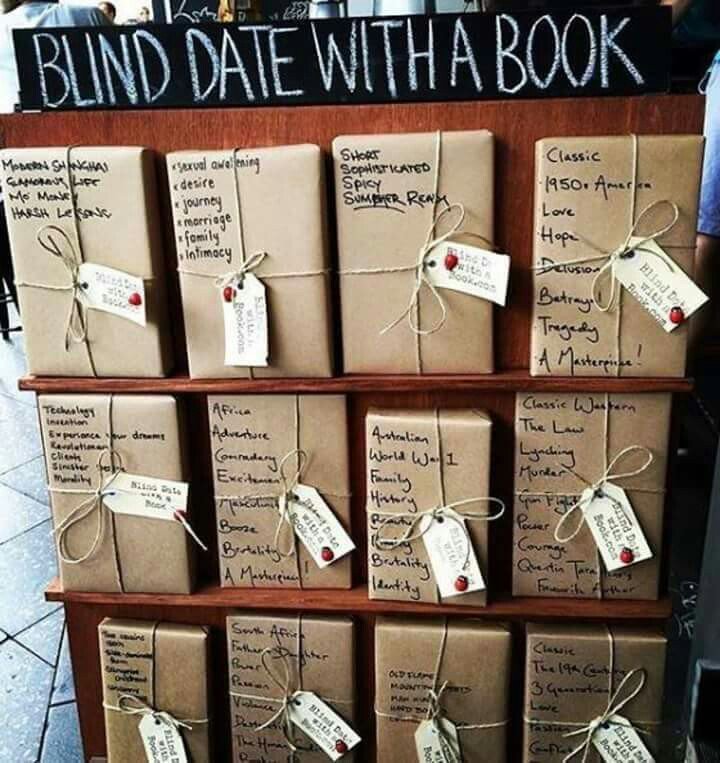 BLIND DATE WITH A BOOK
MODERN SHANGHAI
GLAMOROUS LIFE
MO MONEY
HARSH LESSONS
Blind Date
with a
Book.com
× sexual awakening
× desire
× journey
× marriage
× family
× intimacy
Blind Date
with a
Book.com
SHORT
SOPHISTICATED
SPICY
SUMMER READ
Blind Date
with a
Book.com
Classic
1950s America
Love
Hope
Delusion
Betrayal
Tragedy
A Masterpiece!
Blind Date
with a
Book.com
Technology
Invention
Experience your dreams
Revolutionary
Clients
Sinister
Morality
Blind Date
with a
Book
Africa
Adventure
Comradery
Excitement
Masculinity
Booze
Brutality
A Masterpiece!
Blind Date
with a
Book.com
Australian
World War 1
Family
History
Beauty
Brutality
Identity
Blind Date
with a
Book.com
Classic Western
The Law
Lynching
Murder
Gun Fight
Power
Courage
Quentin Tara
Favourite Author
Blind Date
with a
Book.com
South Africa
Father Daughter
Power
Passion
Violence
The Human
Blind Date
with a
Book.com
OLD FLAME
Blind
with a
Book
Classic
The 19th Century
3 Generations
Love
Passion
Conflict
Blind Date
with a
Book.com